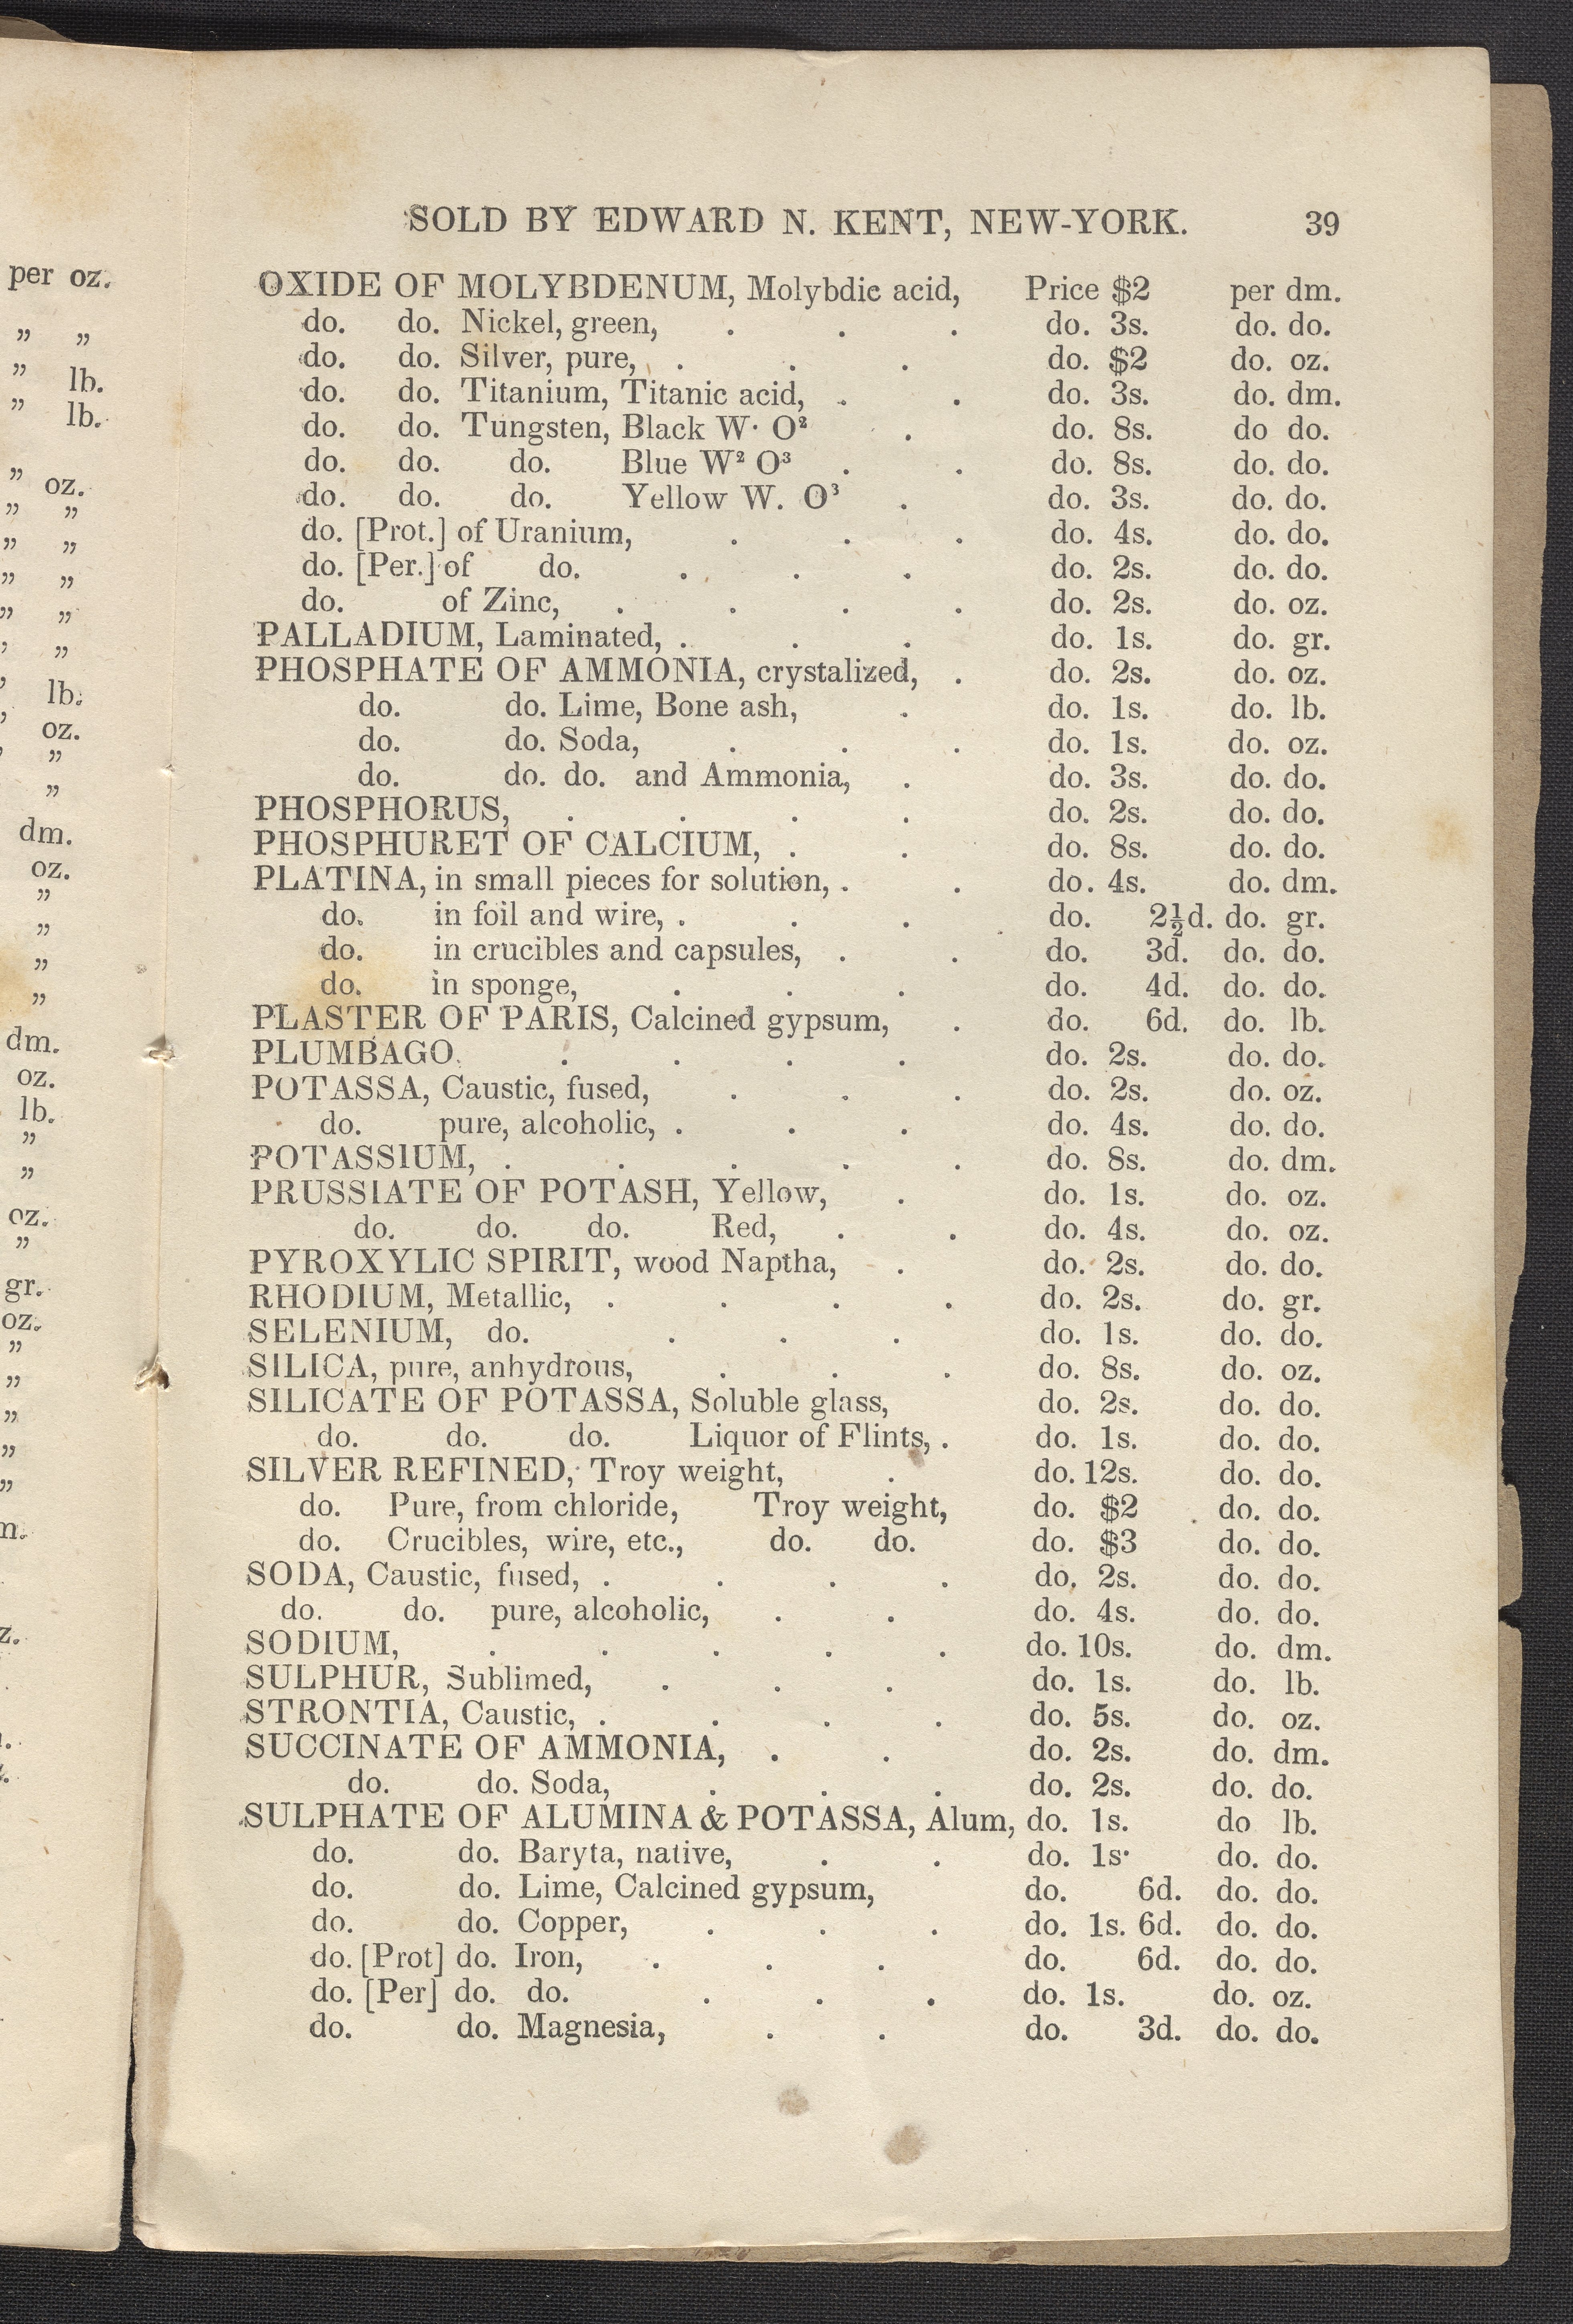 per oz.
„ „
„ lb.
„ lb.
„ oz.
„ „
„ „
„ „
„ „
„ „
lb.
oz.
„
„
dm.
oz.
„
„
„
„
dm.
oz.
lb.
„
„
oz.
„
gr.
oz.
„
„
„
„
„
SOLD BY EDWARD N. KENT, NEW-YORK. 39
OXIDE OF MOLYBDENUM, Molybdic acid, Price $2 per dm.
do. do. Nickel, green, . . . do. 3s. do. do.
do. do. Silver, pure, . . . do. $2 do. oz.
do. do. Titanium, Titanic acid, . . do. 3s. do. dm.
do. do. Tungsten, Black W· O² . do. 8s. do do.
do. do. do. Blue W² O³ . . do. 8s. do. do.
do. do. do. Yellow W. O³ . do. 3s. do. do.
do. [Prot.] of Uranium, . . . do. 4s. do. do.
do. [Per.] of do. . . . do. 2s. do. do.
do. of Zinc, . . . . do. 2s. do. oz.
PALLADIUM, Laminated, . . . do. 1s. do. gr.
PHOSPHATE OF AMMONIA, crystalized, . do. 2s. do. oz.
do. do. Lime, Bone ash, . do. 1s. do. lb.
do. do. Soda, . . . do. 1s. do. oz.
do. do. do. and Ammonia, . do. 3s. do. do.
PHOSPHORUS, . . . . do. 2s. do. do.
PHOSPHURET OF CALCIUM, . . do. 8s. do. do.
PLATINA, in small pieces for solution, . . do. 4s. do. dm.
do. in foil and wire, . . . do. 2½d. do. gr.
do. in crucibles and capsules, . . do. 3d. do. do.
do. in sponge, . . . do. 4d. do. do.
PLASTER OF PARIS, Calcined gypsum, . do. 6d. do. lb.
PLUMBAGO. . . . . do. 2s. do. do.
POTASSA, Caustic, fused, . . . do. 2s. do. oz.
do. pure, alcoholic, . . . do. 4s. do. do.
POTASSIUM, . . . . . do. 8s. do. dm.
PRUSSIATE OF POTASH, Yellow, . do. 1s. do. oz.
do. do. do. Red, . . do. 4s. do. oz.
PYROXYLIC SPIRIT, wood Naptha, . do. 2s. do. do.
RHODIUM, Metallic, . . . . do. 2s. do. gr.
SELENIUM, do. . . . do. 1s. do. do.
SILICA, pure, anhydrous, . . . do. 8s. do. oz.
SILICATE OF POTASSA, Soluble glass, do. 2s. do. do.
do. do. do. Liquor of Flints, . do. 1s. do. do.
SILVER REFINED, Troy weight, . do. 12s. do. do.
do. Pure, from chloride, Troy weight, do. $2 do. do.
do. Crucibles, wire, etc., do. do. do. $3 do. do.
SODA, Caustic, fused, . . . . do. 2s. do. do.
do. do. pure, alcoholic, . . do. 4s. do. do.
SODIUM, . . . . . do. 10s. do. dm.
SULPHUR, Sublimed, . . . do. 1s. do. lb.
STRONTIA, Caustic, . . . . do. 5s. do. oz.
SUCCINATE OF AMMONIA, . . do. 2s. do. dm.
do. do. Soda, . . . do. 2s. do. do.
SULPHATE OF ALUMINA & POTASSA, Alum, do. 1s. do lb.
do. do. Baryta, native, . . do. 1s· do. do.
do. do. Lime, Calcined gypsum, do. 6d. do. do.
do. do. Copper, . . . do. 1s. 6d. do. do.
do. [Prot] do. Iron, . . . do. 6d. do. do.
do. [Per] do. do. . . . do. 1s. do. oz.
do. do. Magnesia, . . do. 3d. do. do.